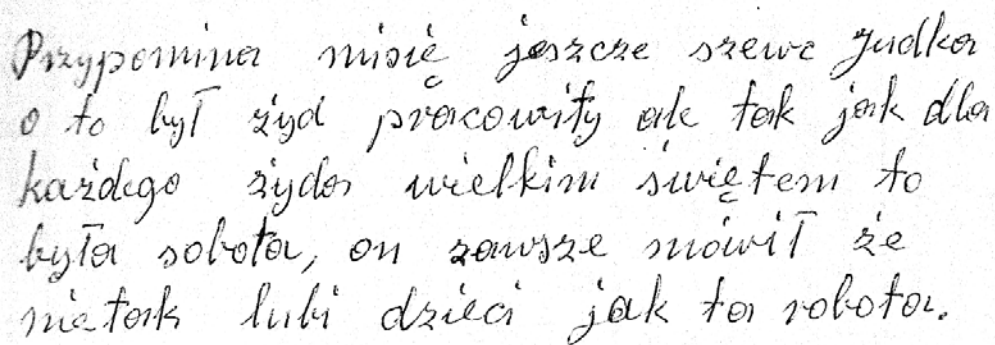 Przypomina misię jeszcze szewc Judka
o to był żyd pracowity ale tak jak dla
każdego żyda wielkim świętem to
była sobota, on zawsze mówił że
nietak lubi dzieci jak ta robota.